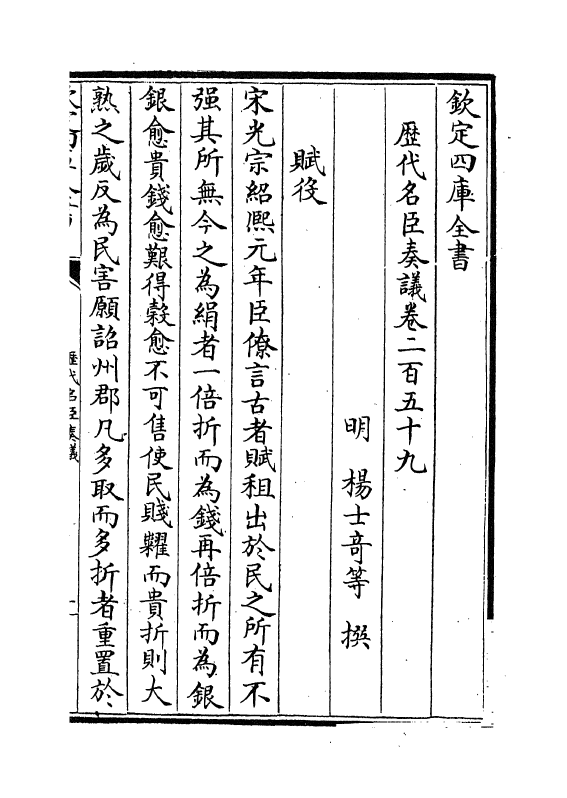 欽定四庫全書
歴代名臣奏議卷二百五十九
明 楊士竒等 撰
賦役
宋光宗紹熙元年臣僚言古者賦租出於民之所有不
强其所無今之為絹者一倍折而為錢再倍折而為銀
銀愈貴錢愈艱得榖愈不可售使民賤糶而貴折則大
熟之歲反為民害願詔州郡凡多取而多折者重置於
歴代名臣奏議